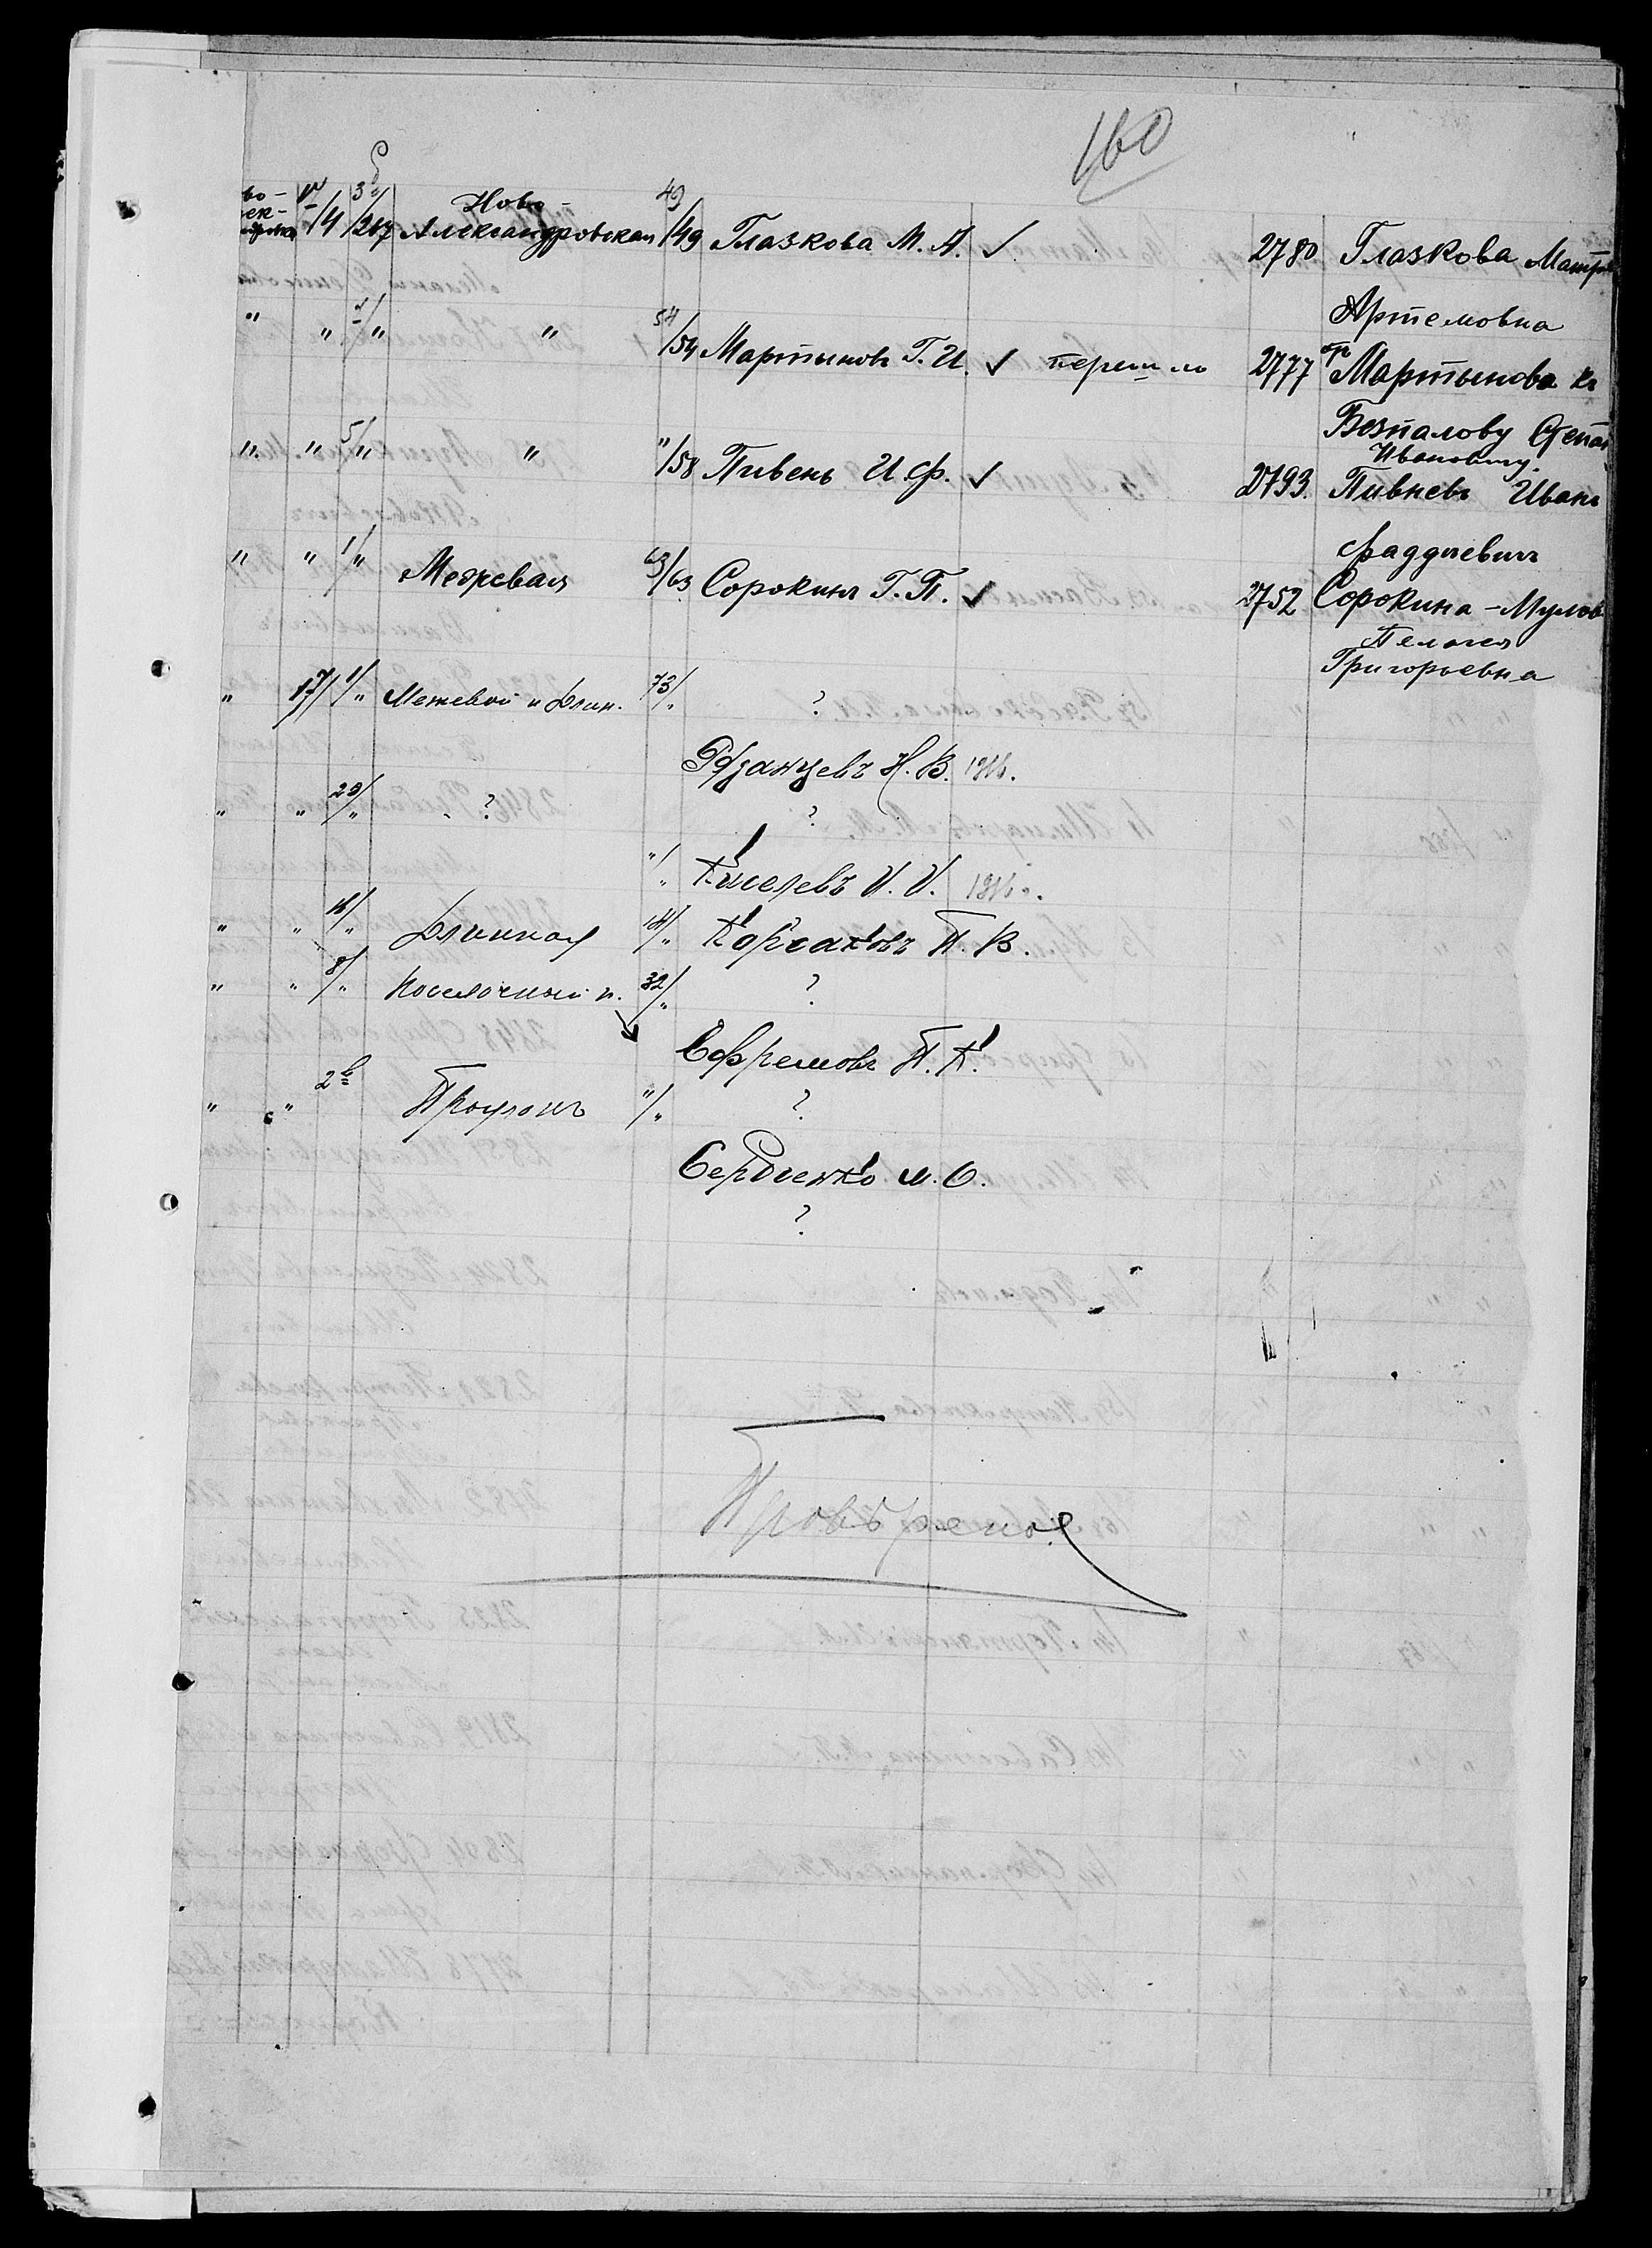 160
Ново-
/4 /267 Александровская 49/49 Глазкова М. А. ✓ 2780 Глазкова
Артемовна
" " " " 54/54 Мартыновъ Г. И. ✓ перешло 2777 отъ Мартынова къ
Безпалову
Ивановичу.
" " 5/" " "/58 Пивень И. Ф. ✓ 2793. Пивневъ Иванъ
Фаддѣевичъ
" " 1/" Межевая 63/63 Сорокинъ Г. П. ✓ 2752 Сорокина-
Пелагея
Григорьевна
" 17/ 1/" Межевой и Длин. 73/" ?
Рязанцевъ Н. В. 1916.
" " 29/" ? ?
"/" Киселевъ И. И. 1916 г.
" " 16/" Длинная 14/" Корсаковъ П. В.
" " 8/" Поселочный п. 32/" ?
Ефремовъ П. К.
" " 2 Проулокъ "/" ?
Сердченко М. О.
?
Провѣрено